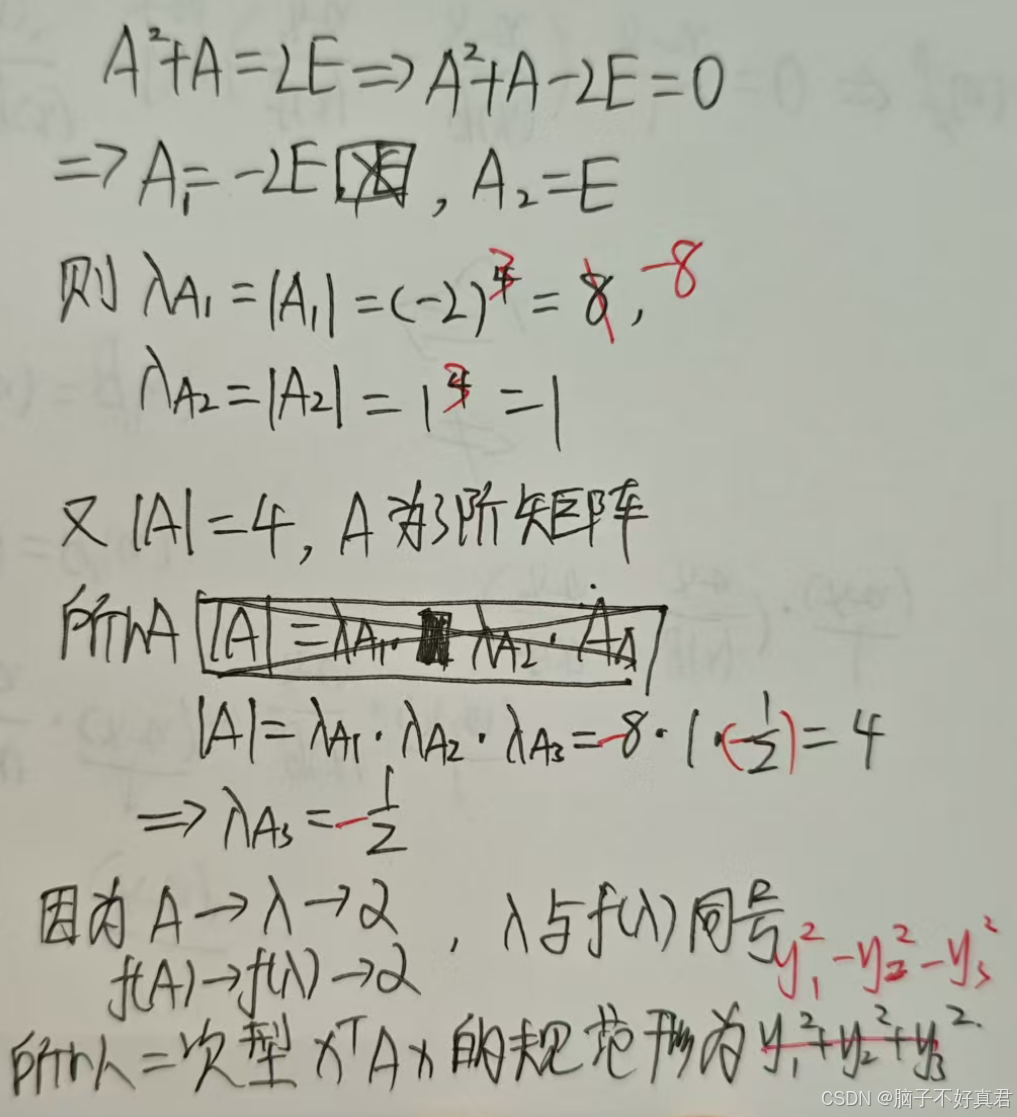 A²+A=2E⇒A²+A-2E=0
⇒A₁=-2E, A₂=E
则 λA₁=|A₁|=(-2)³=8, -8
λA₂=|A₂|=1³=1
又|A|=4, A为3阶矩阵
所以A |A|=λA₁·λA₂·
|A|=λA₁·λA₂·λA₃=-8·1·(-1/2)=4
⇒λA₃=-1/2
因为A→λ→α, λ与f(λ)同号
f(A)→f(λ)→α
y₁²-y₂²-y₃²
所以二次型xᵀAx的规范形为y₁²+y₂²+y₃².
CSDN @脑子不好真君